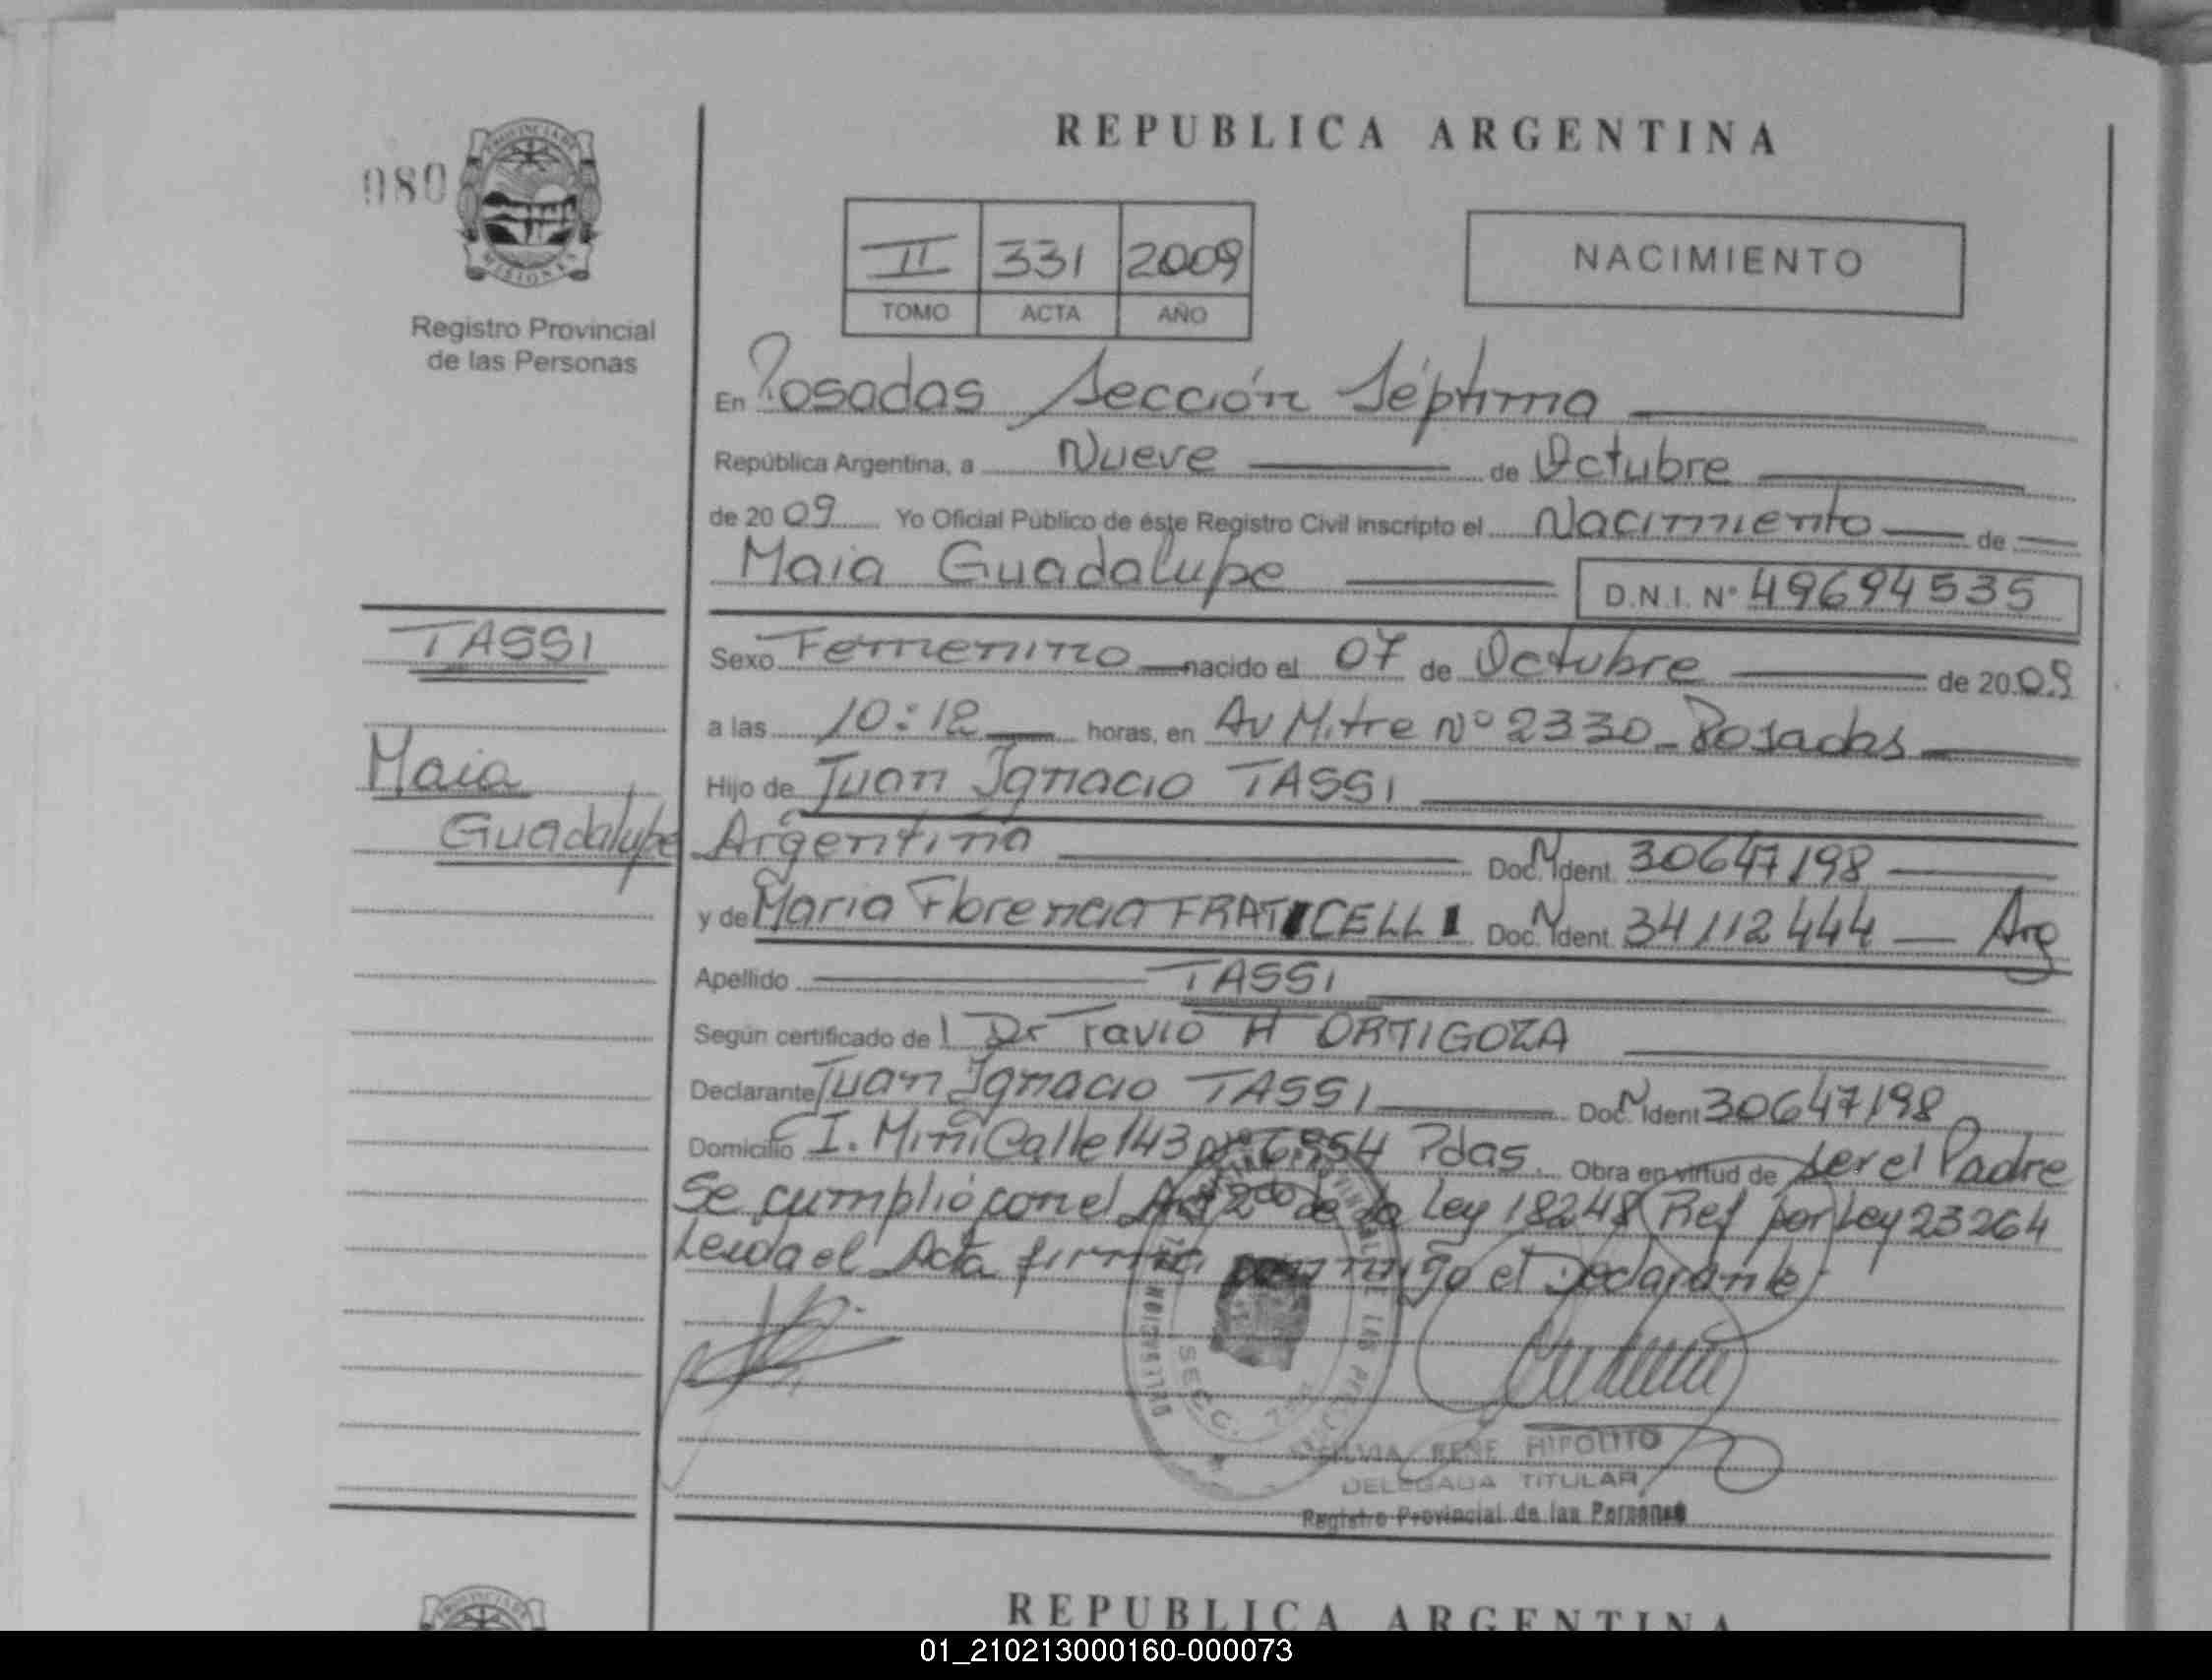 REPUBLICA ARGENTINA
080
PROVINCIA DE
MISIONES
Registro Provincial
de las Personas
II 331 2009
TOMO ACTA AÑO
NACIMIENTO
En Posadas Sección Séptima
República Argentina, a Nueve de Octubre
de 20 09 Yo Oficial Público de éste Registro Civil inscripto el Nacimiento de
Maia Guadalupe D.N.I. Nº 49694535
TASSI
Maia
Guadalupe
Sexo Femenino nacido el 07 de Octubre de 20 09
a las 10:12 horas, en Av Mitre Nº 2330 Posadas
Hijo de Juan Ignacio TASSI
Argentina Doc. N Ident. 30647198
y de Maria Florencia FRATICELLI Doc. N Ident. 34112444 Arg
Apellido TASSI
Según certificado del Dr Tavio H ORTIGOZA
Declarante Juan Ignacio TASSI Doc. N Ident 30647198
Domicilio I. Mini Calle 143 Nº 6854 Pdas. Obra en virtud de ser el Padre
Se cumplió con el Art 2do de la Ley 18248 Ref por Ley 23264
Leida el Acta firma conmigo el Declarante
SECC.
SILVIA RENE HIPOLITO
DELEGADA TITULAR
Registro Provincial de las Personas
PROVINCIA DE
REPUBLICA ARGENTINA
01_210213000160-000073